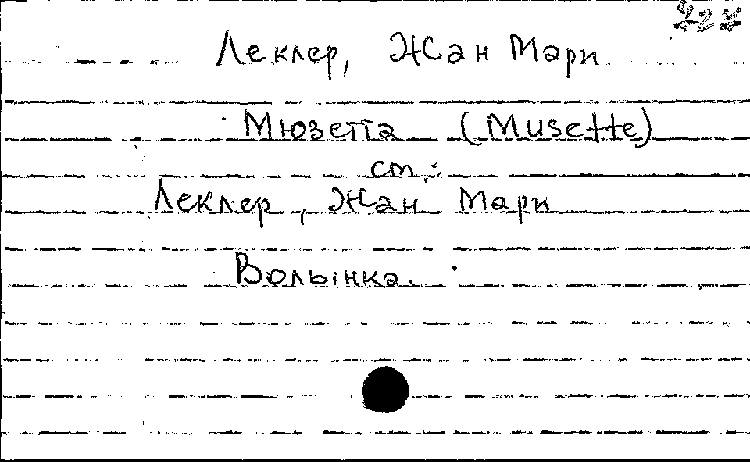 Леклер, Жан Мари
Мюзетта (Musette)
см.:
Леклер, Жан Мари
Волынка.